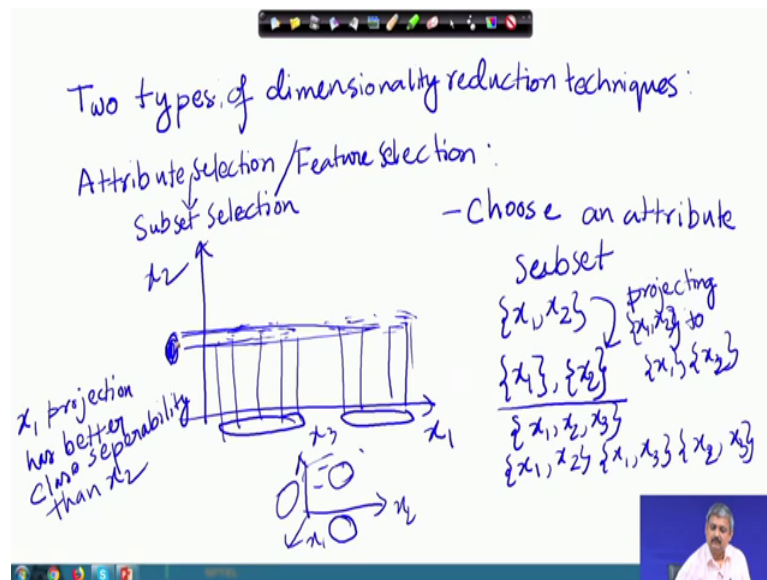 Two types of dimensionality reduction techniques:
Attribute selection / Feature selection:
Subset selection
- Choose an attribute
subset
{x1, x2}
projecting
{x1, x2} to
{x1} {x2}
{x1}, {x2}
{x1, x2, x3}
{x1, x2} {x1, x3} {x2, x3}
x2
x1
x1 projection
has better
class seperability
than x2
x3
x2
x1